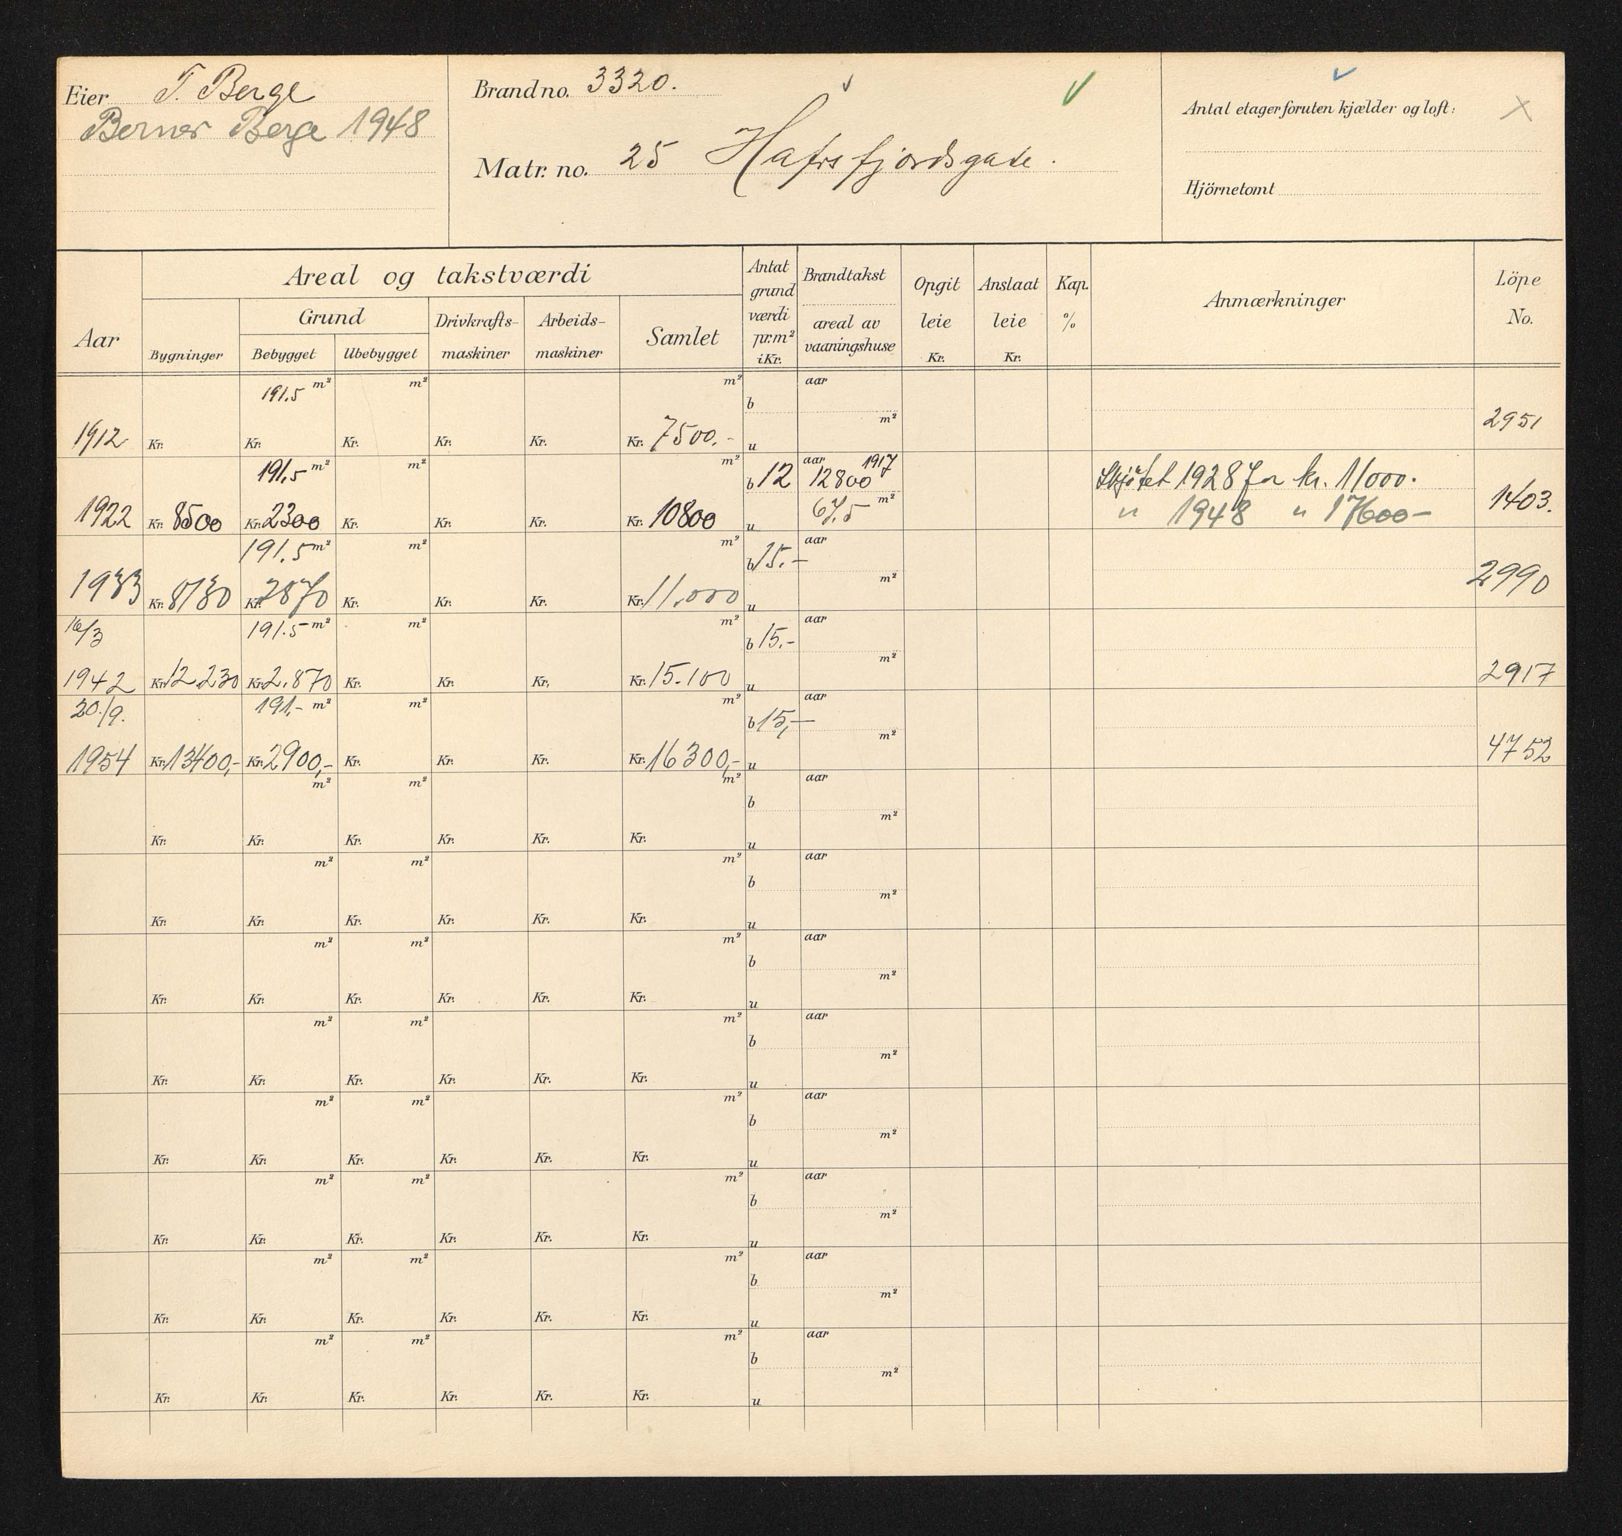 Eier T. Berge
Berner Berge 1948
Brand no. 3320.
Matr. no. 25 Hafrsfjordsgate.
Antal etager foruten kjælder og loft:
Hjörnetomt
Aar
Areal og takstværdi
Bygninger
Grund
Bebygget Ubebygget
Drivkrafts-maskiner
Arbeids-maskiner
Samlet
Antat grund værdi pr. m² i Kr.
Brandtakst
areal av vaaningshuse
Opgit leie Kr.
Anslaat leie Kr.
Kap. %
Anmærkninger
Löpe No.
191.5 m² m² m² b aar m²
1912 Kr. Kr. Kr. Kr. Kr. Kr. 7500.- u 2951
191,5 m² m² m² b 12 aar 1917 12800 Skjøtet 1928 for kr. 11000.
1922 Kr. 8500 Kr. 2300 Kr. Kr. Kr. Kr. 10800 u 67,5 m² " 1948 " 17600- 1403.
191.5 m² m² m² b 15.- aar m²
1933 Kr. 8130 Kr. 2870 Kr. Kr. Kr. Kr. 11.000 u 2990
16/3 191.5 m² m² m² b 15.- aar m²
1942 Kr. 12.230 Kr. 2.870 Kr. Kr. Kr. Kr. 15.100 u 2917
20./9. 191,- m² m² m² b 15,- aar m²
1954 Kr. 13400,- Kr. 2900,- Kr. Kr. Kr. Kr. 16300,- u 4752
m² m² m² b aar m²
Kr. Kr. Kr. Kr. Kr. Kr. u
m² m² m² b aar m²
Kr. Kr. Kr. Kr. Kr. Kr. u
m² m² m² b aar m²
Kr. Kr. Kr. Kr. Kr. Kr. u
m² m² m² b aar m²
Kr. Kr. Kr. Kr. Kr. Kr. u
m² m² m² b aar m²
Kr. Kr. Kr. Kr. Kr. Kr. u
m² m² m² b aar m²
Kr. Kr. Kr. Kr. Kr. Kr. u
m² m² m² b aar m²
Kr. Kr. Kr. Kr. Kr. Kr. u
m² m² m² b aar m²
Kr. Kr. Kr. Kr. Kr. Kr. u